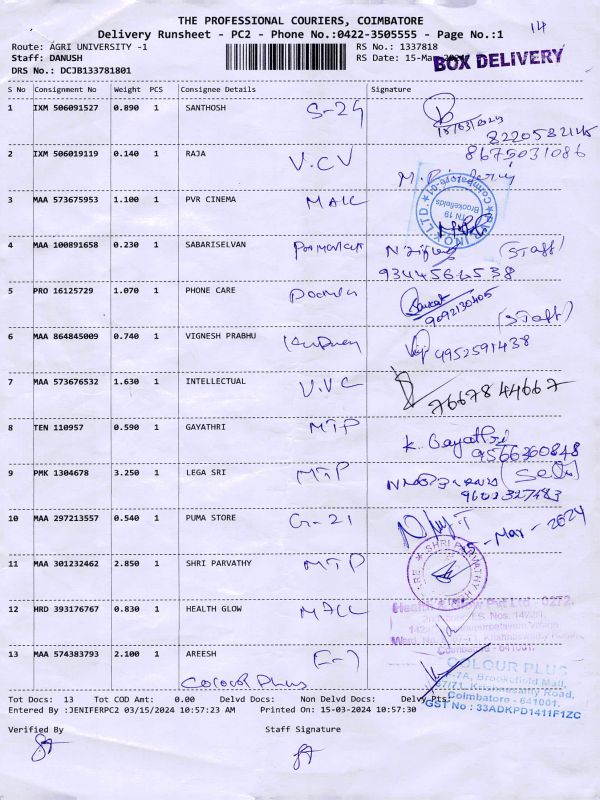 THE PROFESSIONAL COURIERS, COIMBATORE
14
Delivery Runsheet - PC2 - Phone No.:0422-3505555 - Page No.:1
Route: AGRI UNIVERSITY -1
RS No.: 1337818
Staff: DANUSH
RS Date: 15-Mar
BOX DELIVERY
DRS No.: DCJB133781801
S No Consignment No Weight PCS Consignee Details Signature
1 IXM 506091527 0.890 1 SANTHOSH S-29
15/03/2024
8220582145
2 IXM 506019119 0.140 1 RAJA V.CV
8675031086
M.
3 MAA 573675953 1.100 1 PVR CINEMA MALL
INOX LTD. Coimbatore-01
Brookefields
TN 19
4 MAA 100891658 0.230 1 SABARISELVAN (Staff)
9344566538
5 PRO 16125729 1.070 1 PHONE CARE
9092130405
(Staff)
6 MAA 864845009 0.740 1 VIGNESH PRABHU
4952591438
7 MAA 573676532 1.630 1 INTELLECTUAL V.VC
7667844667
8 TEN 110957 0.590 1 GAYATHRI MTP K. Gayathri
9566360848
9 PMK 1304678 3.250 1 LEGA SRI MTP
10 MAA 297213557 0.540 1 PUMA STORE G-21
15-Mar-2024
11 MAA 301232462 2.850 1 SHRI PARVATHY MTP
SHRI PARVATHY
12 HRD 393176767 0.830 1 HEALTH GLOW MALL
Health & Glow Pvt Ltd - 0272
Coimbatore - 641001.
13 MAA 574383793 2.100 1 AREESH E-7
Colour Plus
COLOUR PLUS
7A, Brookefield Mall,
67/71, Krishnasamy Road,
Coimbatore - 641001.
GST No : 33ADKPD1411F1ZC
Tot Docs: 13 Tot COD Amt: 0.00 Delvd Docs: Non Delvd Docs: Delvy Pts:
Entered By :JENIFERPC2 03/15/2024 10:57:23 AM Printed On: 15-03-2024 10:57:30
Verified By Staff Signature